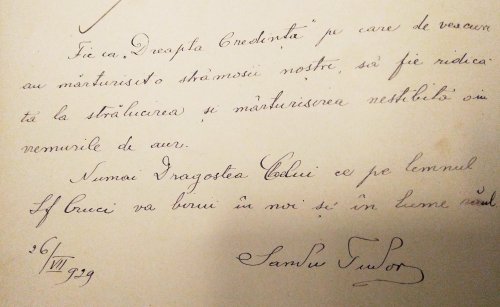 Fie ca „Dreapta Credință" pe care de veacuri
au mărturisit-o strămoșii noștri, să fie ridica-
tă la strălucirea și mărturisirea nestibită din
vremurile de aur.
Numai Dragostea Celui ce pe lemnul
Sf Cruci va birui în noi și în lume răul
26/VII 929
Sandu Tudor